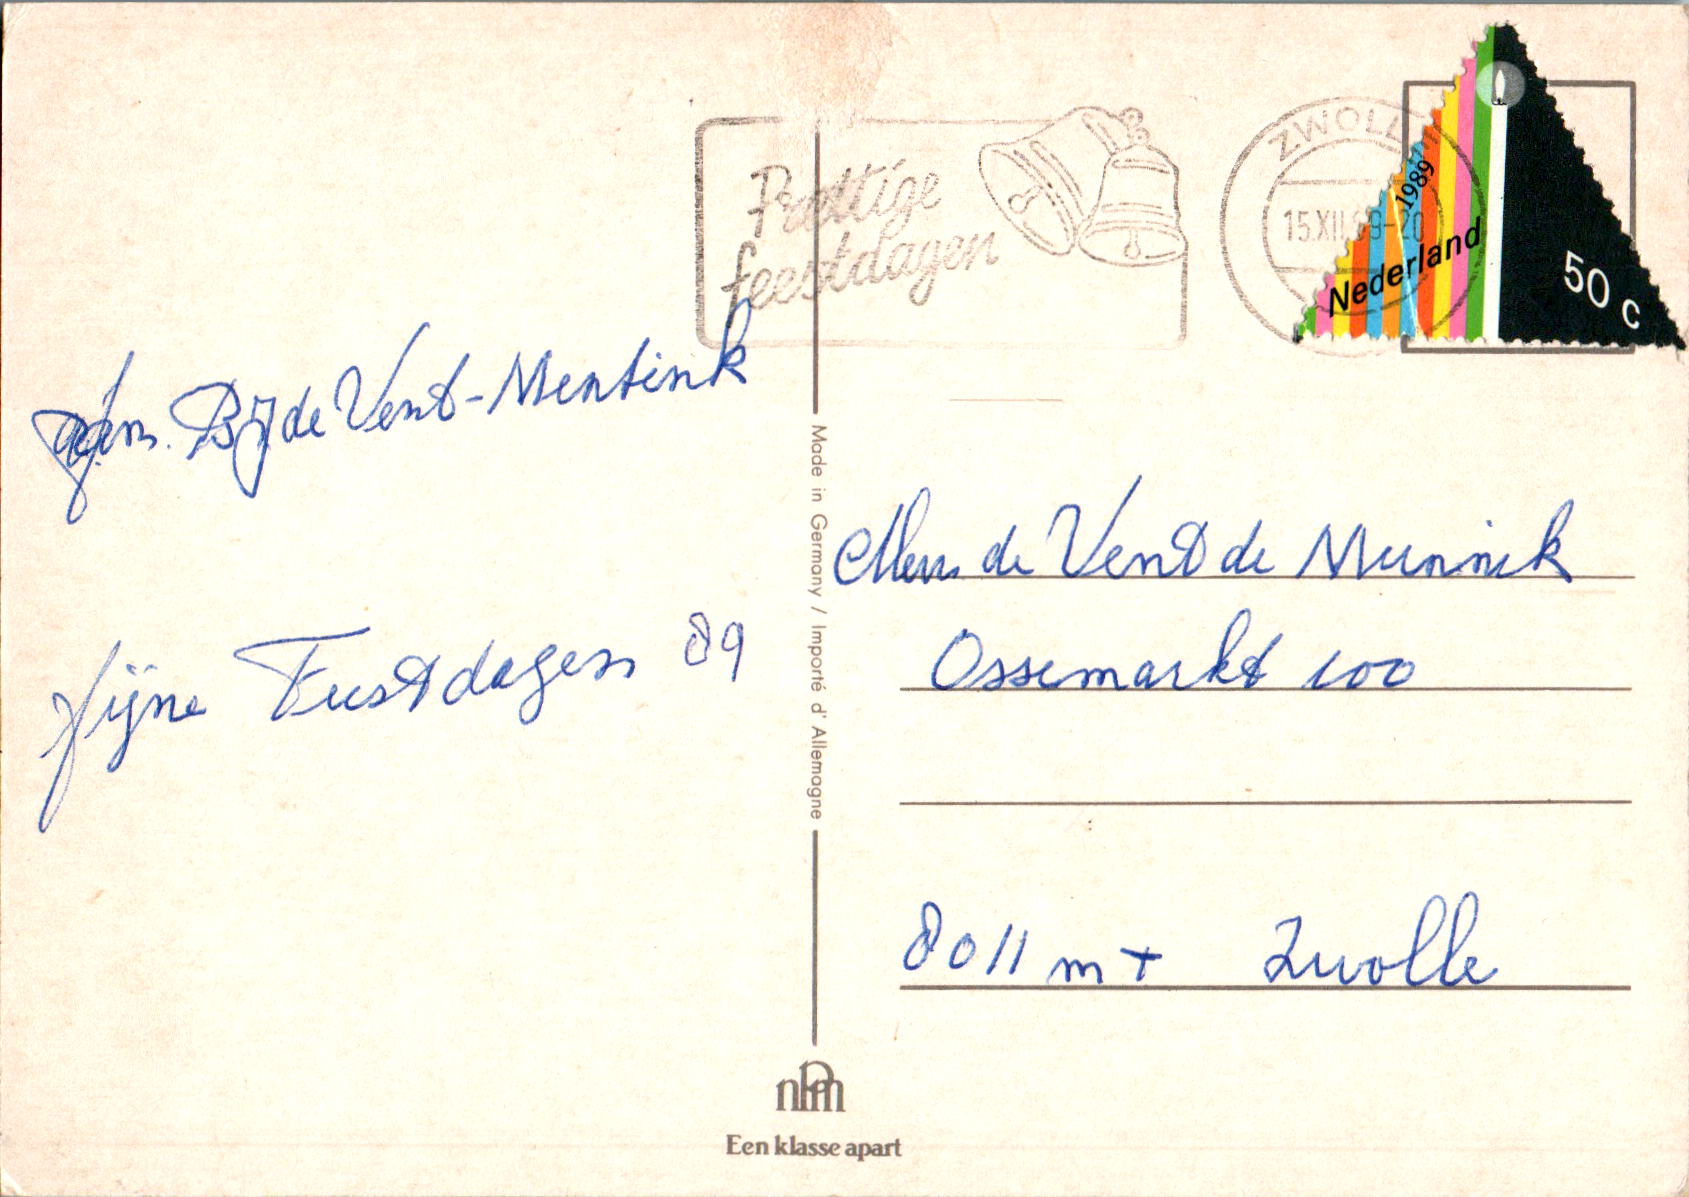 Prettige
feestdagen
ZWOLLE
15.XII.89-20
1989
Nederland
50 c
fam. Bijde Vent-Mentink
fijne Feestdagen 89
Made in Germany / Importé d'Allemagne
Mevr de Vent de Munnik
Ossemarkt 100
8011 m t Zwolle
npm
Een klasse apart